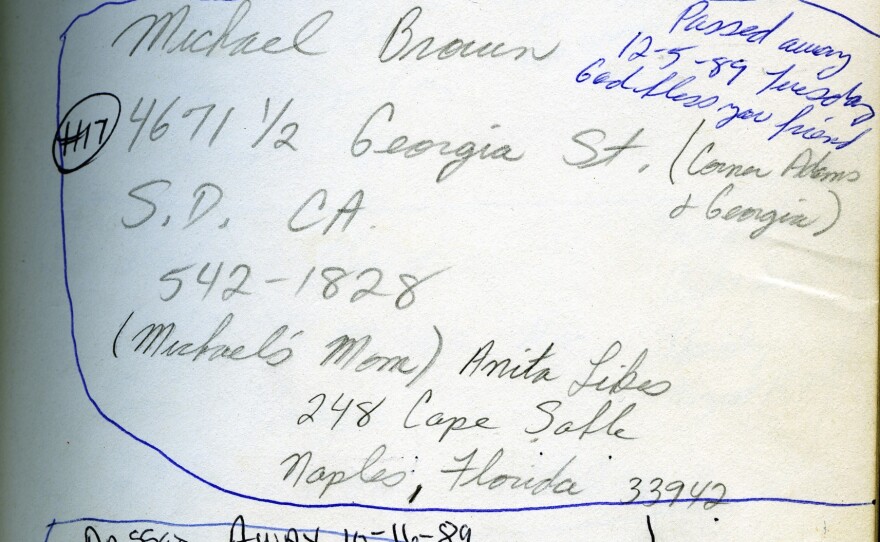 Michael Brown
Passed away
12-5-89 Tuesday
God bless you friend
#17
4671 1/2 Georgia St. (Corner Adams
& Georgia)
S.D. CA.
542-1828
(Michael's Mom) Anita Likes
248 Cape Sable
Naples, Florida 33942
Passed Away 10-16-89